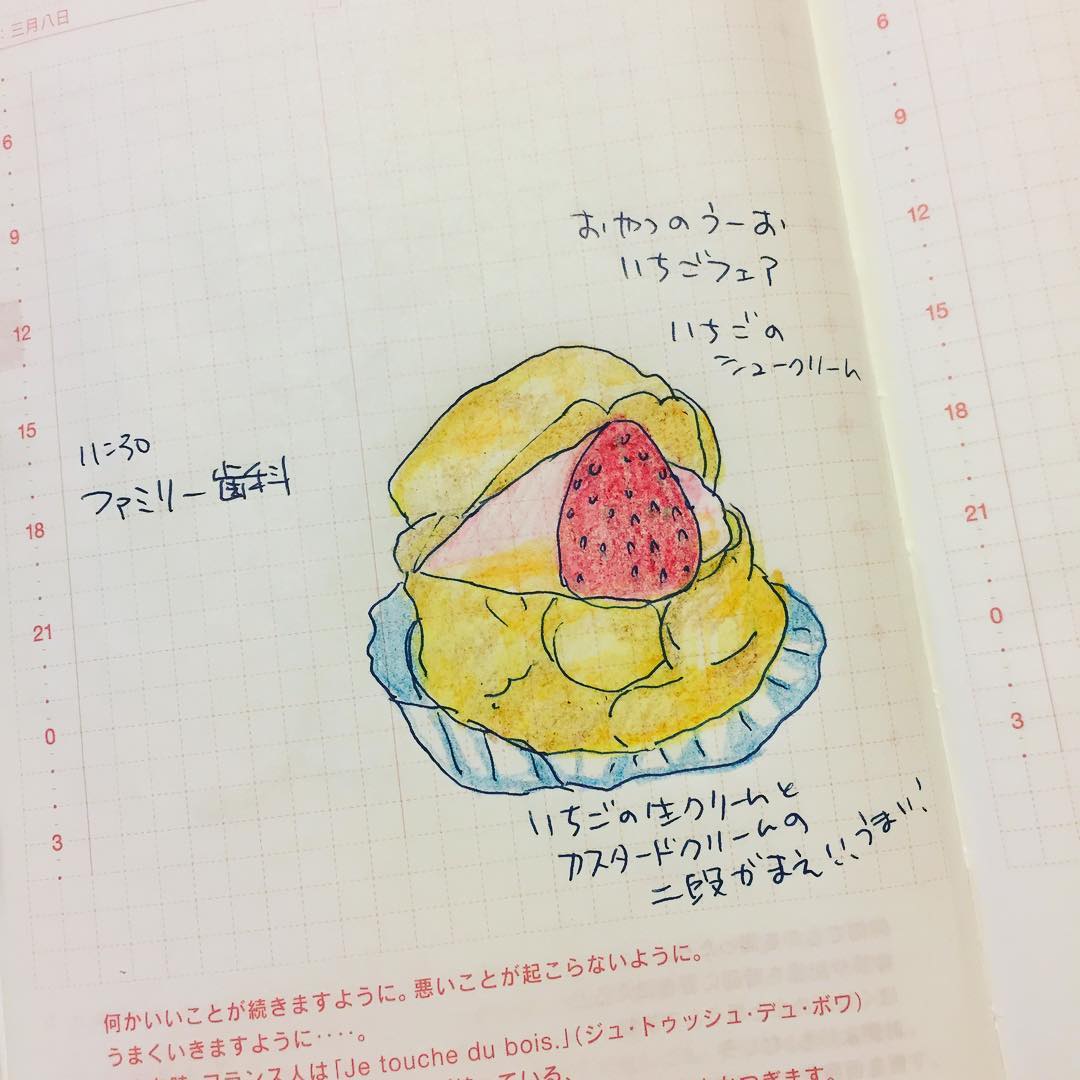 三月八日
6
9
12
15
18
21
0
3
おやつのうーお
いちごフェア
いちごの
シュークリーム
11:30
ファミリー歯科
いちごの生クリームと
カスタードクリームの
二段がまえ!!、うまい!
何かいいことが続きますように。悪いことが起こらないように。
うまくいきますように‥‥。
フランス人は「Je touche du bois.」(ジュ・トゥッシュ・デュ・ボワ)
ている、
つぎます。
6
9
12
15
18
21
0
3